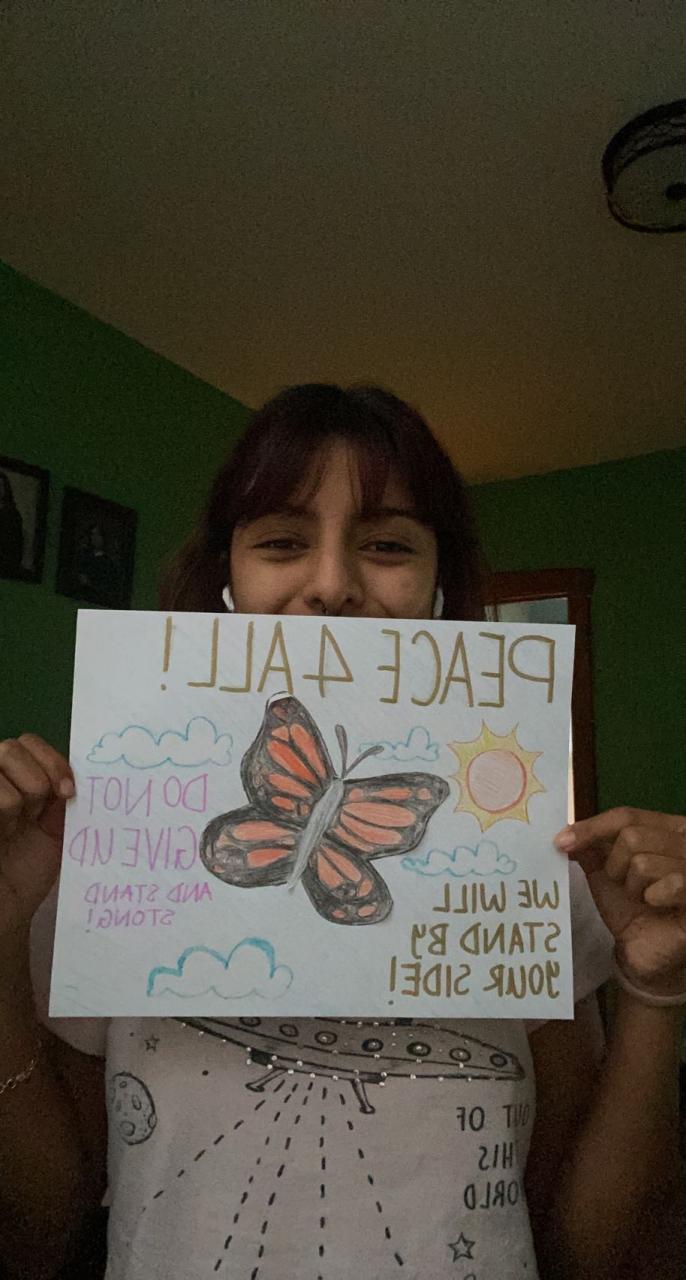 PEACE 4 ALL!
DO NOT
GIVE UP
AND STAND
STONG!
WE WILL
STAND BY
YOUR SIDE!
OUT OF
THIS
WORLD